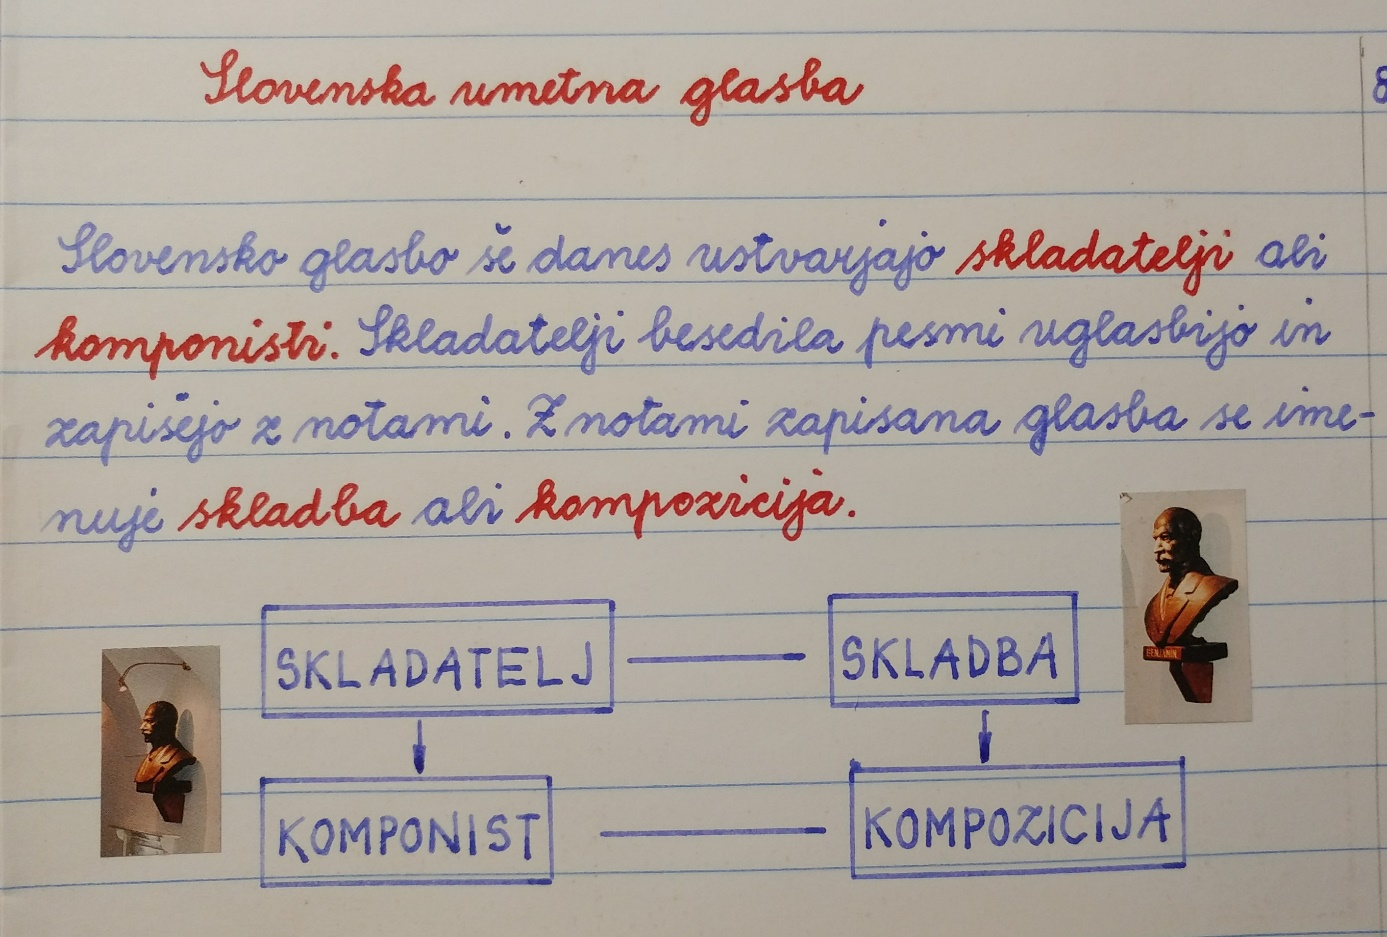 Slovenska umetna glasba
8
Slovensko glasbo še danes ustvarjajo skladatelji ali
komponisti. Skladatelji besedila pesmi uglasbijo in
zapišejo z notami. Z notami zapisana glasba se ime-
nuje skladba ali kompozicija.
SKLADATELJ SKLADBA
BENJAMIN
KOMPONIST KOMPOZICIJA